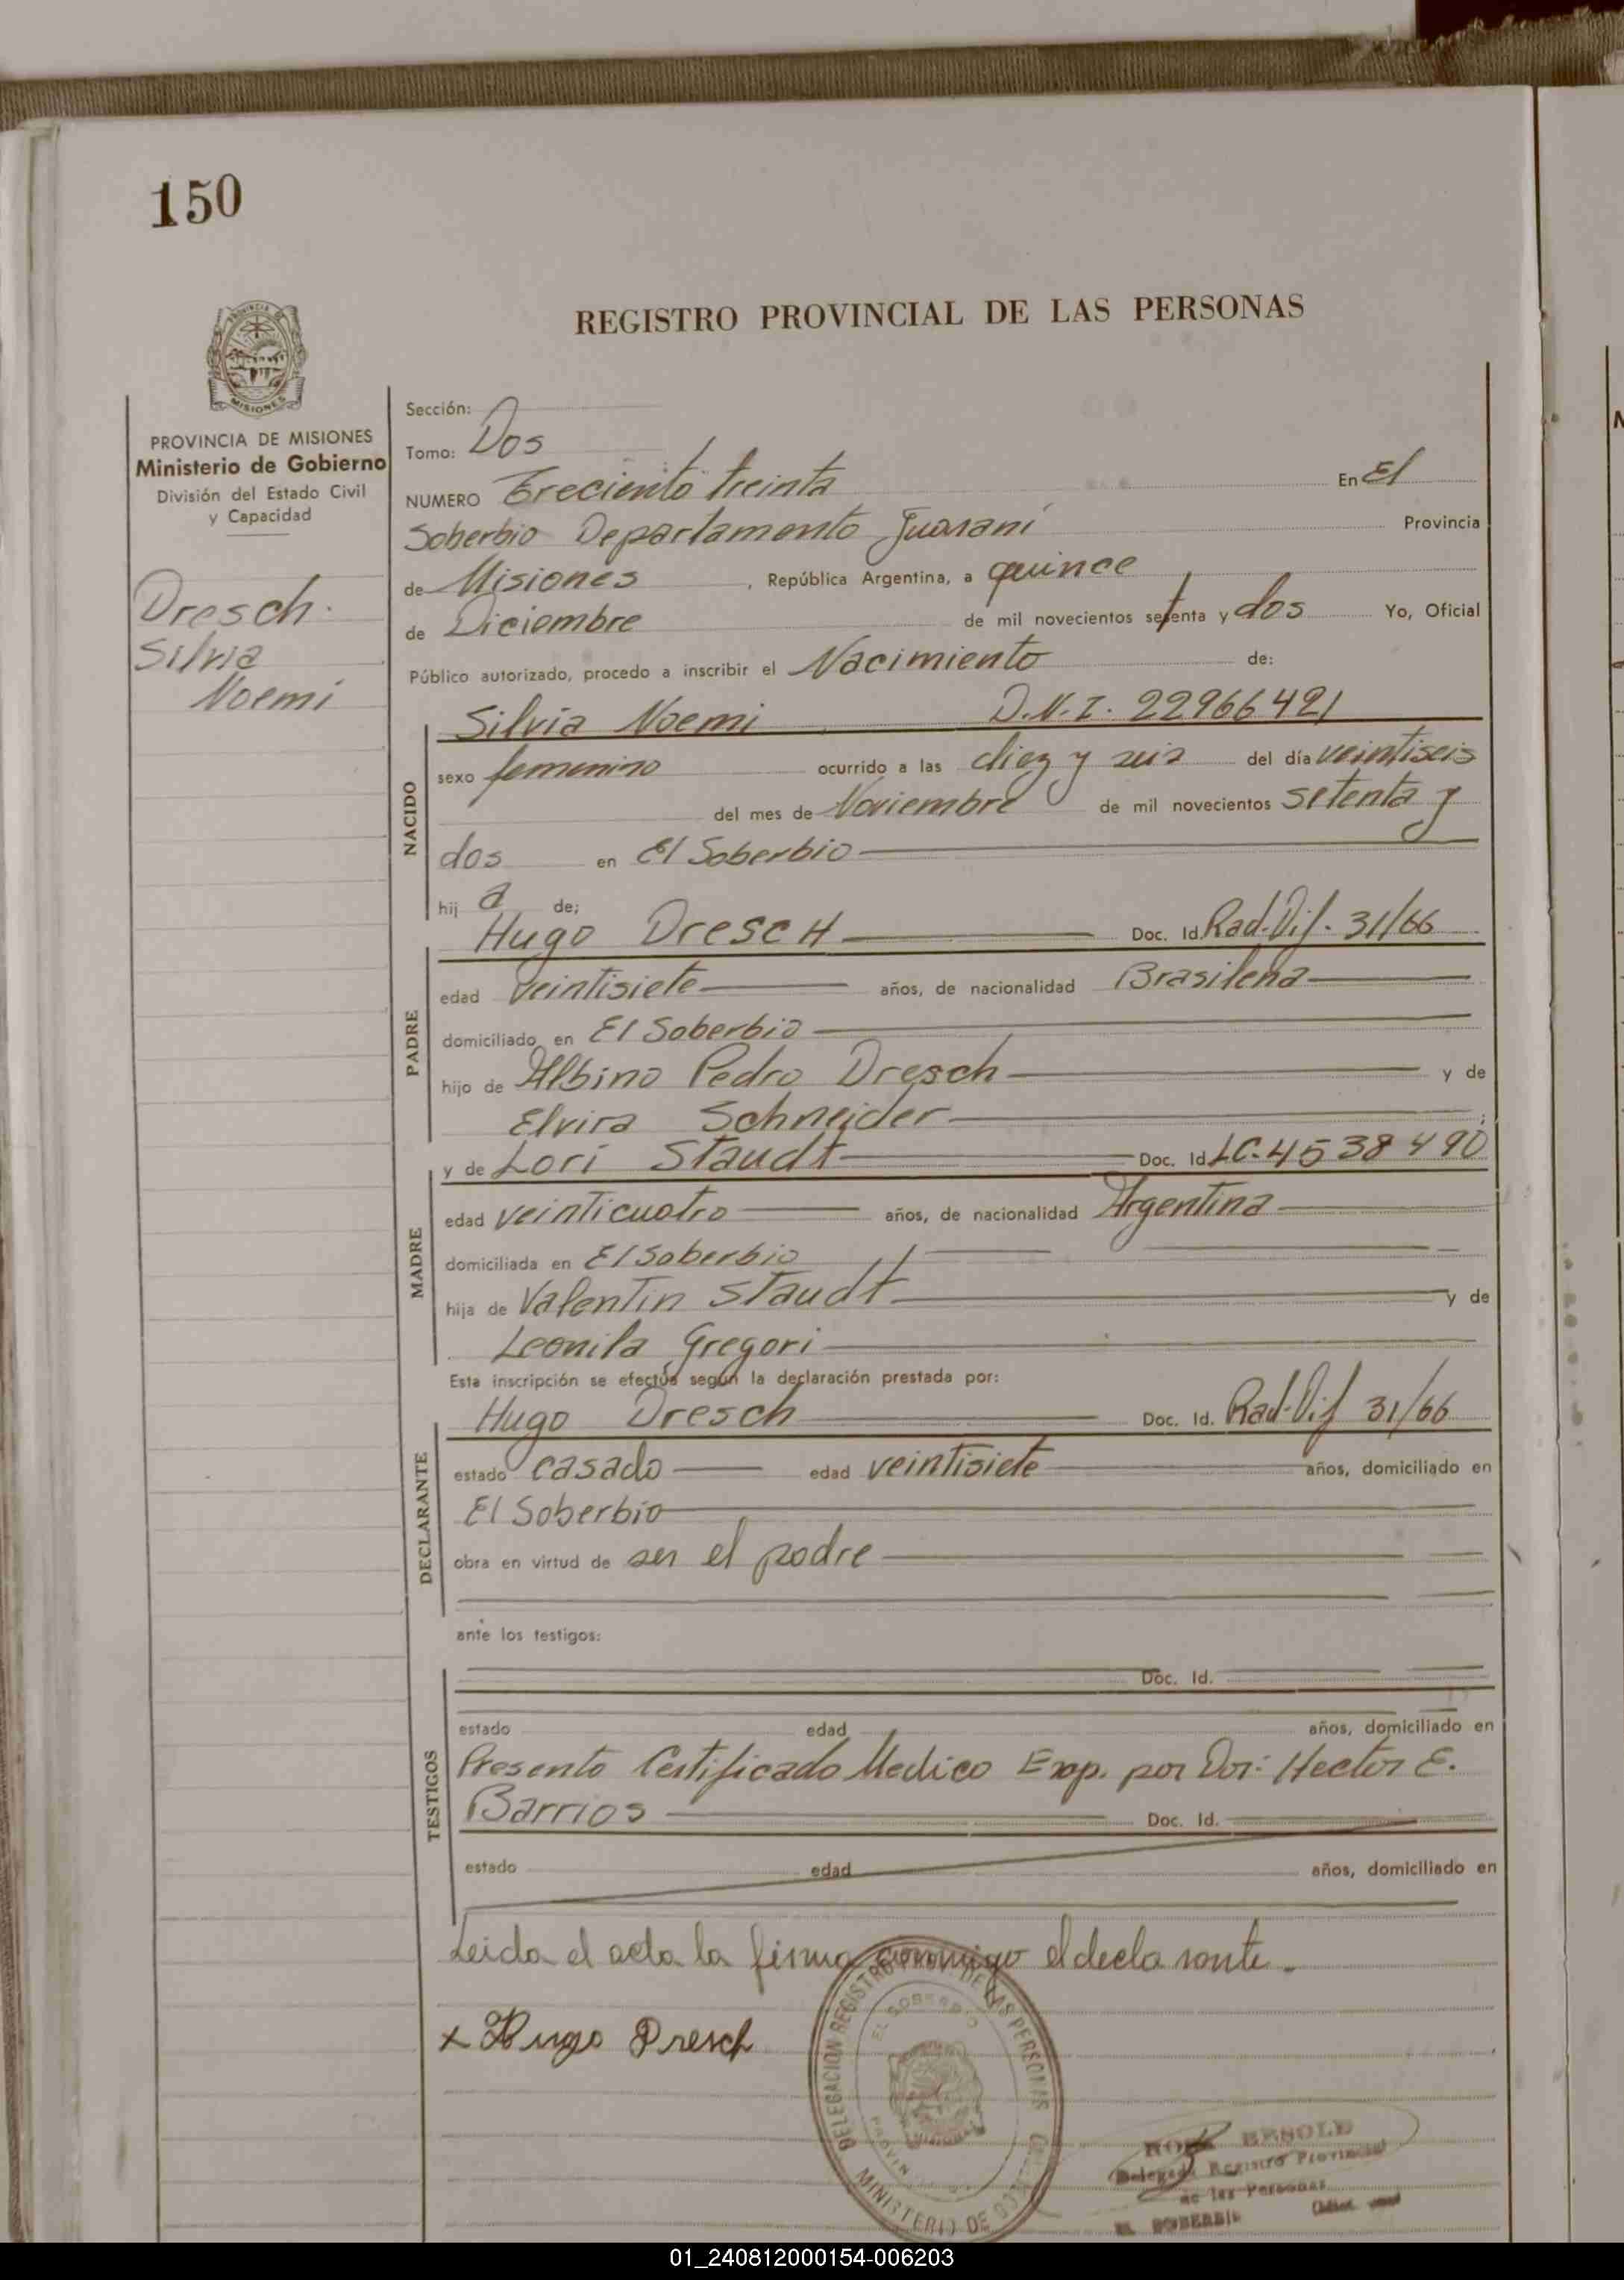 150
REGISTRO PROVINCIAL DE LAS PERSONAS
PROVINCIA DE MISIONES
Ministerio de Gobierno
División del Estado Civil
y Capacidad
Dresch.
Silvia
Noemi
Sección:
Tomo: Dos
NUMERO Treciento treinta En El
Soberbio Departamento Guaraní Provincia
de Misiones, República Argentina, a quince
de Diciembre de mil novecientos setenta y dos Yo, Oficial
Público autorizado, procedo a inscribir el Nacimiento de:
Silvia Noemi D.N.I. 22966421
NACIDO
sexo femenino ocurrido a las diez y seis del día veintiseis
del mes de Noviembre de mil novecientos setenta y
dos en El Soberbio
hij a de;
Hugo DrescH Doc. Id. Rad. Dif. 31/66
PADRE
edad veintisiete años, de nacionalidad Brasileña
domiciliado en El Soberbio
hijo de Albino Pedro Dresch y de
Elvira Schneider ;
y de Lori Staudt Doc. Id. LC. 4538490
MADRE
edad veinticuatro años, de nacionalidad Argentina
domiciliada en El Soberbio
hija de Valentin Staudt y de
Leonila Gregori
Esta inscripción se efectúa según la declaración prestada por:
Hugo Dresch Doc. Id. Rad. Dif 31/66
DECLARANTE
estado casado edad veintisiete años, domiciliado en
El Soberbio
obra en virtud de ser el padre
ante los testigos:
Doc. Id.
TESTIGOS
estado edad años, domiciliado en
Presento Certificado Medico Exp. por Dor: Hector E.
Barrios Doc. Id.
estado edad años, domiciliado en
Leida el acta la firma conmigo el declarante.
x Hugo Dresch
DELEGACION REGISTRO PROV. DE LAS PERSONAS
EL SOBERBIO
MISIONES
MINISTERIO DE
BESOLD
Delegada Registro Provincial
de las Personas
EL SOBERBIO
01_240812000154-006203